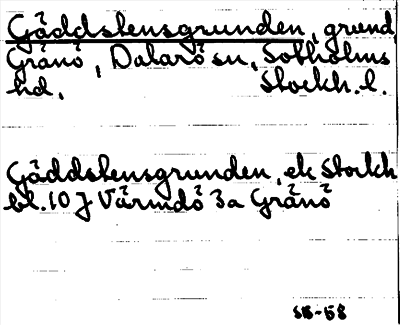 Gäddstensgrunden, grund,
Gränö, Dalarö sn, Sotholms
hd, Stockh. l.
Gäddstensgrunden, ek Stockh
bl. 10 J Värmdö 3a Gränö
SB-58